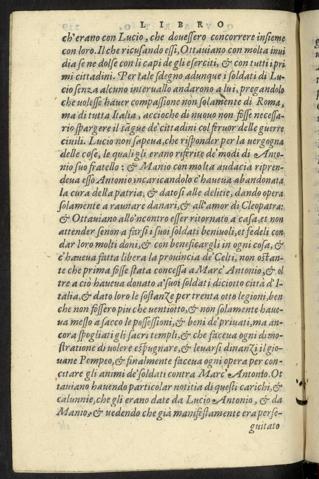 LIBRO
ch'erano con Lucio, che douessero concorrere insieme
con loro. Il che ricusando essi, Ottauiano con molta inui
dia se ne dolse con li capi de gli eserciti, & con tutti i pri
mi cittadini. Per tale sdegno adunque i soldati di Lu-
cio senza alcuno interuallo andarono a lui, pregandolo
che uolesse hauer compassione non solamente di Roma,
ma di tutta Italia, accioche di nuouo non fosse necessa-
rio spargere il sãgue de' cittadini col furor delle guerre
ciuili. Lucio non sapeua, che risponder per la uergogna
delle cose, le quali gli erano riferite de' modi di Anto-
nio suo fratello: & Manio con molta audacia ripren-
deua esso Antonio incaricandolo c'haueua abandonata
la cura della patria, & datosi alle delitie, dando opera
solamente a raunare danari, & all'amor di Cleopatra:
& Ottauiano allo'ncontro esser ritornato a casa, et non
attender se non a farsi i suoi soldati beniuoli, et fedeli con
dar loro molti doni, & con beneficargli in ogni cosa, &
c'haueua fatta libera la prouincia de' Celti, non ostan-
te che prima fosse stata concessa a Marc'Antonio, & ol
tre a ciò haueua donato a' suoi soldati diciotto città d'I-
talia, & dato loro le sostanze per trenta otto legioni, ben
che non fossero piu che uentiotto, & non solamente haue-
ua messo a sacco le possessioni, & beni de' priuati, ma an-
cora spogliati gli sacri tempij, & che faceua ogni dimo-
stratione di uolere espugnare, & leuarsi dinanzi il gio-
uane Pompeo, & finalmente faceua ogni opera per con-
citare gli animi de' soldati contra Marc'Antonio. Ot
tauiano hauendo particolar notitia di questi carichi, &
calunnie, che gli erano date da Lucio Antonio, & da
Manio, & uedendo che già manifestamente era perse-
guitato